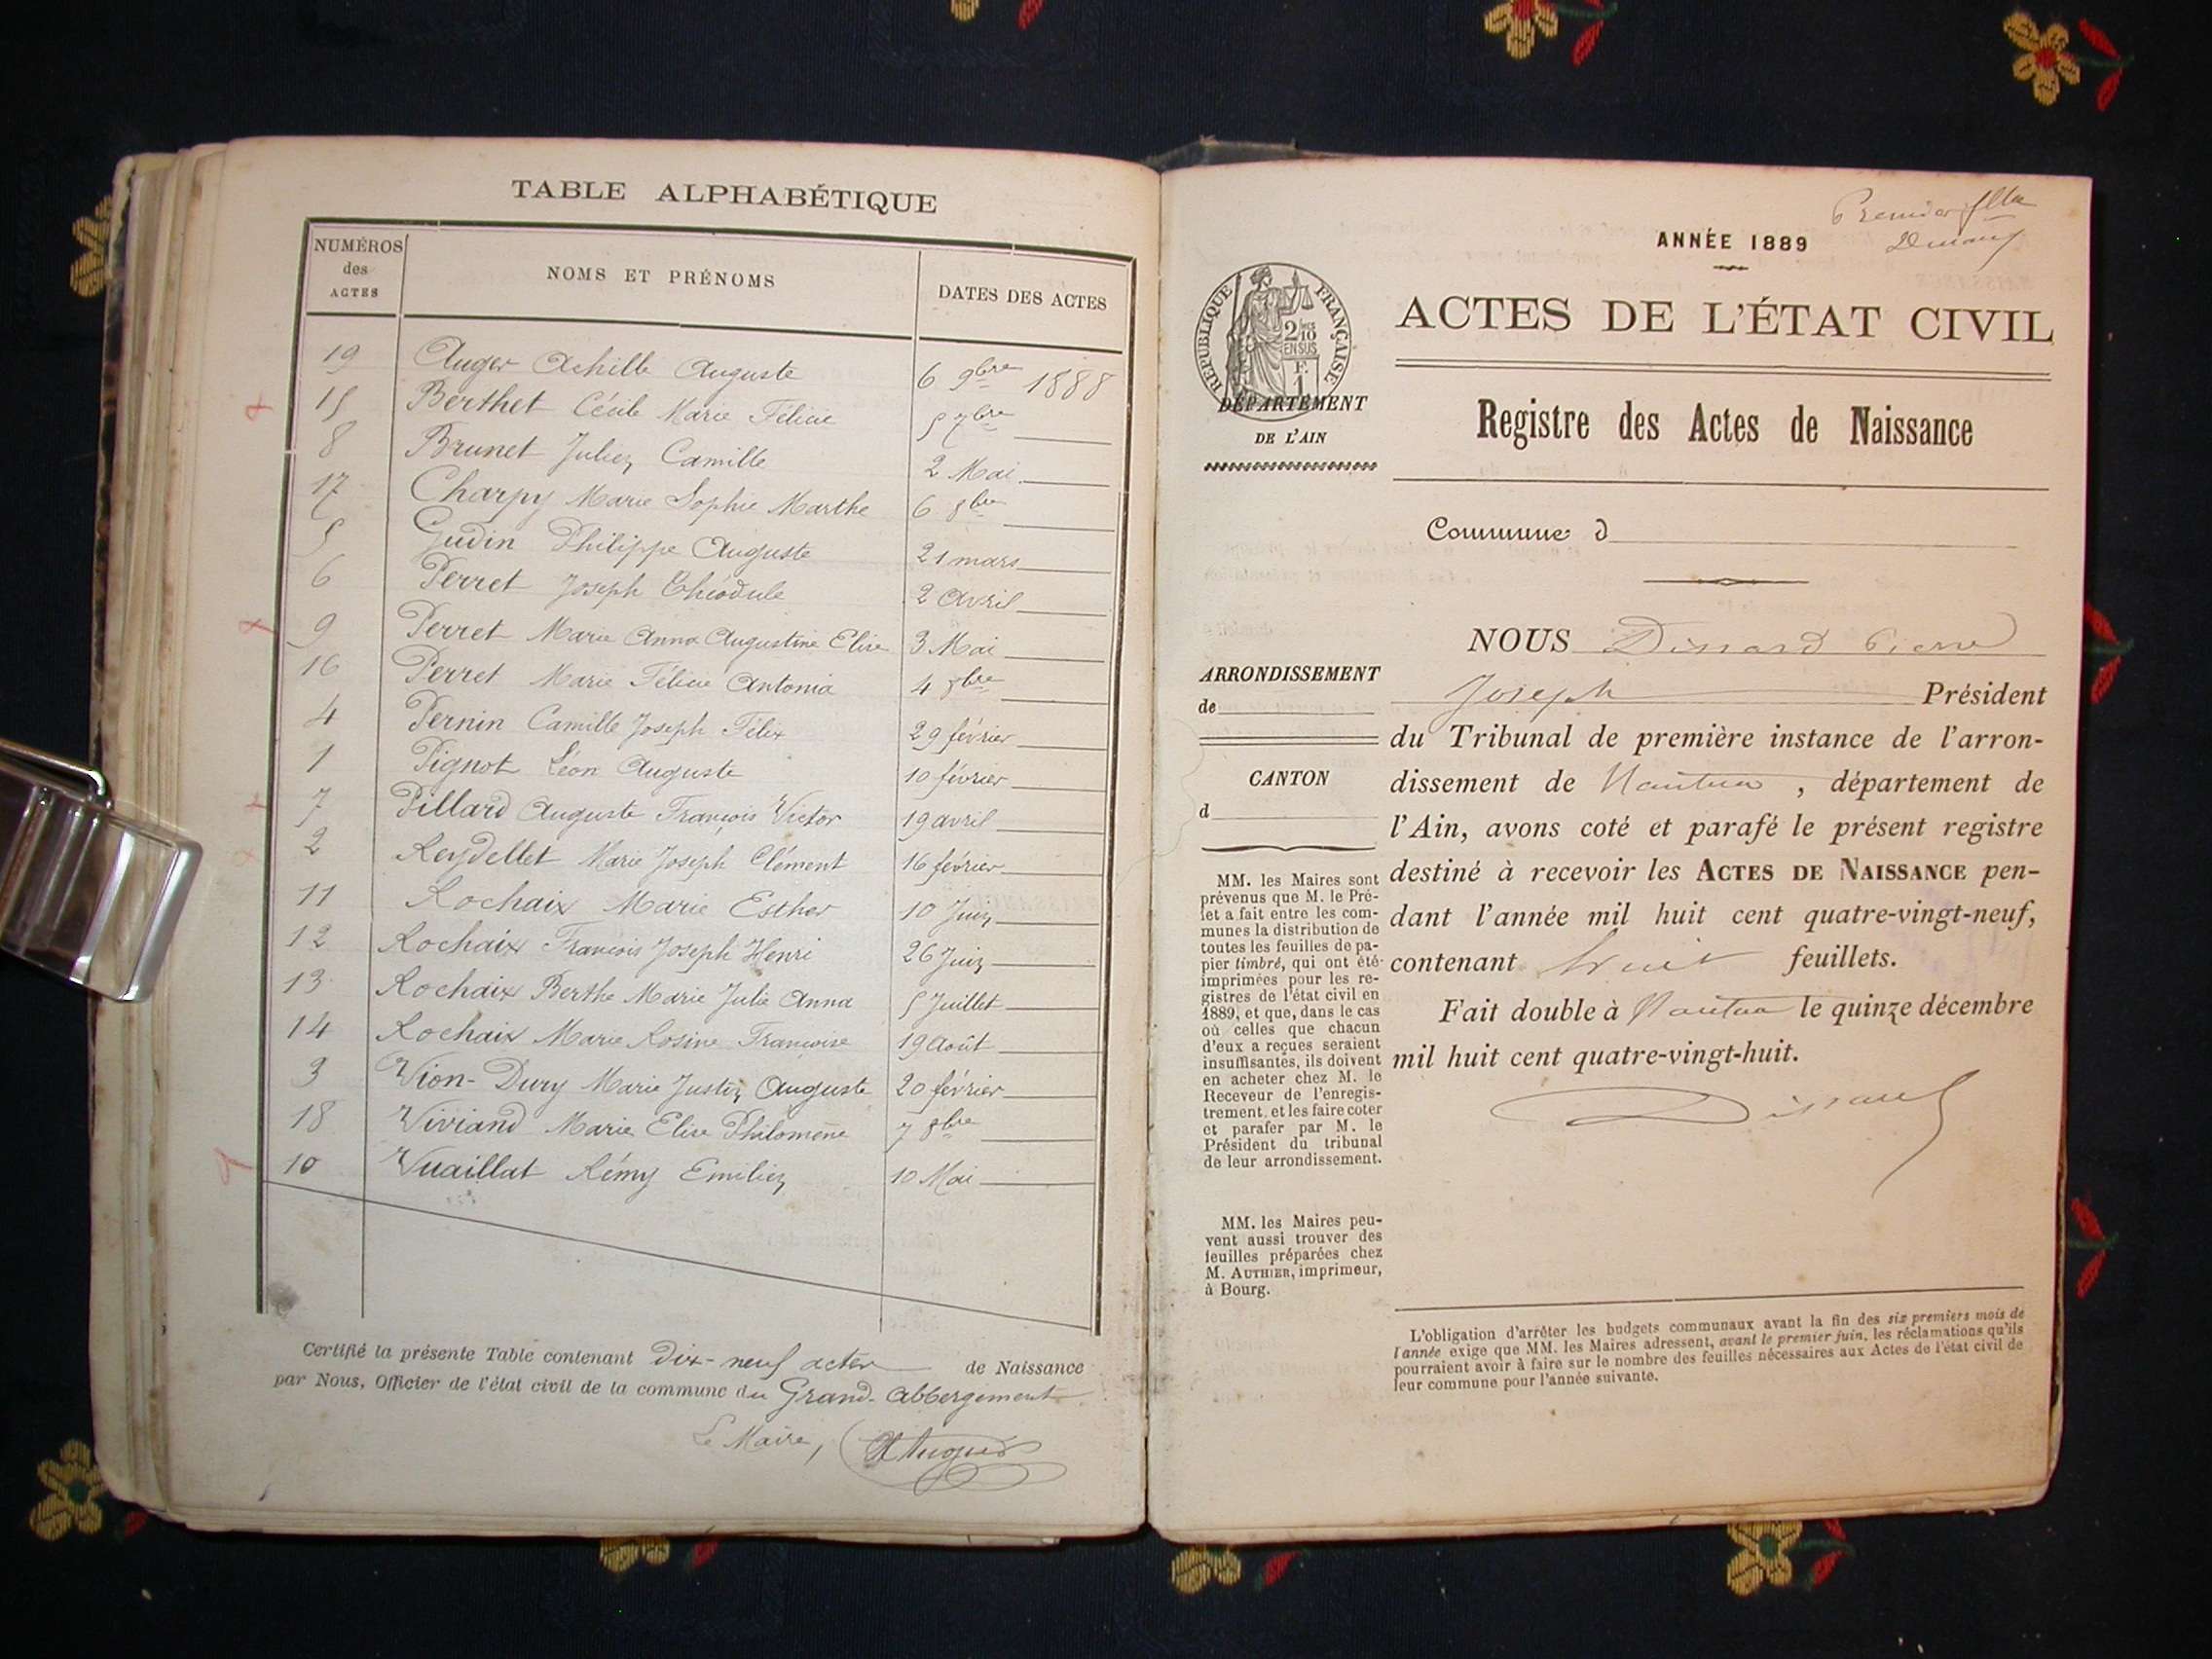 TABLE ALPHABÉTIQUE
NUMÉROS des ACTES NOMS ET PRÉNOMS DATES DES ACTES
19 Auger Achille Auguste 6 9bre 1888
15 Berthet Cécile Marie Félicie 5 7bre
8 Brunet Julien Camille 2 Mai
17 Charpy Marie Sophie Marthe 6 8bre
5 Gudin Philippe Auguste 21 mars
6 Perret Joseph Théodule 2 Avril
9 Perret Marie Anna Augustine Elise 3 Mai
16 Perret Marie Félicie Antonia 4 8bre
4 Pernin Camille Joseph Félix 29 février
1 Pignot Léon Auguste 10 février
7 Pillard Auguste François Victor 19 avril
2 Reydellet Marie Joseph Clément 16 février
11 Rochaix Marie Esther 10 Juin
12 Rochaix François Joseph Henri 26 Juin
13 Rochaix Berthe Marie Julie Anna 5 Juillet
14 Rochaix Marie Rosine Françoise 19 Août
3 Vion-Dury Marie Justin Auguste 20 février
18 Viviand Marie Elise Philomène 7 8bre
10 Vuaillat Rémy Emilien 10 Mai
Certifié la présente Table contenant Dix-neuf actes de Naissance
par Nous, Officier de l'état civil de la commune du Grand-Abbergement
Le Maire,
Premier
ANNÉE 1889
RÉPUBLIQUE FRANÇAISE
2/10
EN SUS
F.
1
ACTES DE L'ÉTAT CIVIL
DÉPARTEMENT
DE L'AIN
Registre des Actes de Naissance
Commune d
ARRONDISSEMENT
de
CANTON
d
MM. les Maires sont
prévenus que M. le Pré-
fet a fait entre les com-
munes la distribution de
toutes les feuilles de pa-
pier timbré, qui ont été
imprimées pour les re-
gistres de l'état civil en
1889, et que, dans le cas
où celles que chacun
d'eux a reçues seraient
insuffisantes, ils doivent
en acheter chez M. le
Receveur de l'enregis-
trement, et les faire coter
et parafer par M. le
Président du tribunal
de leur arrondissement.
MM. les Maires peu-
vent aussi trouver des
feuilles préparées chez
M. AUTHIER, imprimeur,
à Bourg.
NOUS Dissard Pierre
Joseph Président
du Tribunal de première instance de l'arron-
dissement de Nantua, département de
l'Ain, avons coté et parafé le présent registre
destiné à recevoir les ACTES DE NAISSANCE pen-
dant l'année mil huit cent quatre-vingt-neuf,
contenant huit feuillets.
Fait double à Nantua le quinze décembre
mil huit cent quatre-vingt-huit.
Dissard
L'obligation d'arrêter les budgets communaux avant la fin des six premiers mois de
l'année exige que MM. les Maires adressent, avant le premier juin, les réclamations qu'ils
pourraient avoir à faire sur le nombre des feuilles nécessaires aux Actes de l'état civil de
leur commune pour l'année suivante.